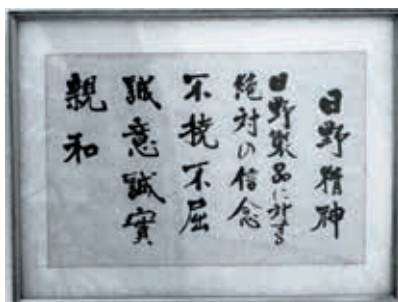 日野精神
日野製品に対する
絶対の信念
不撓不屈
誠意誠實
親和